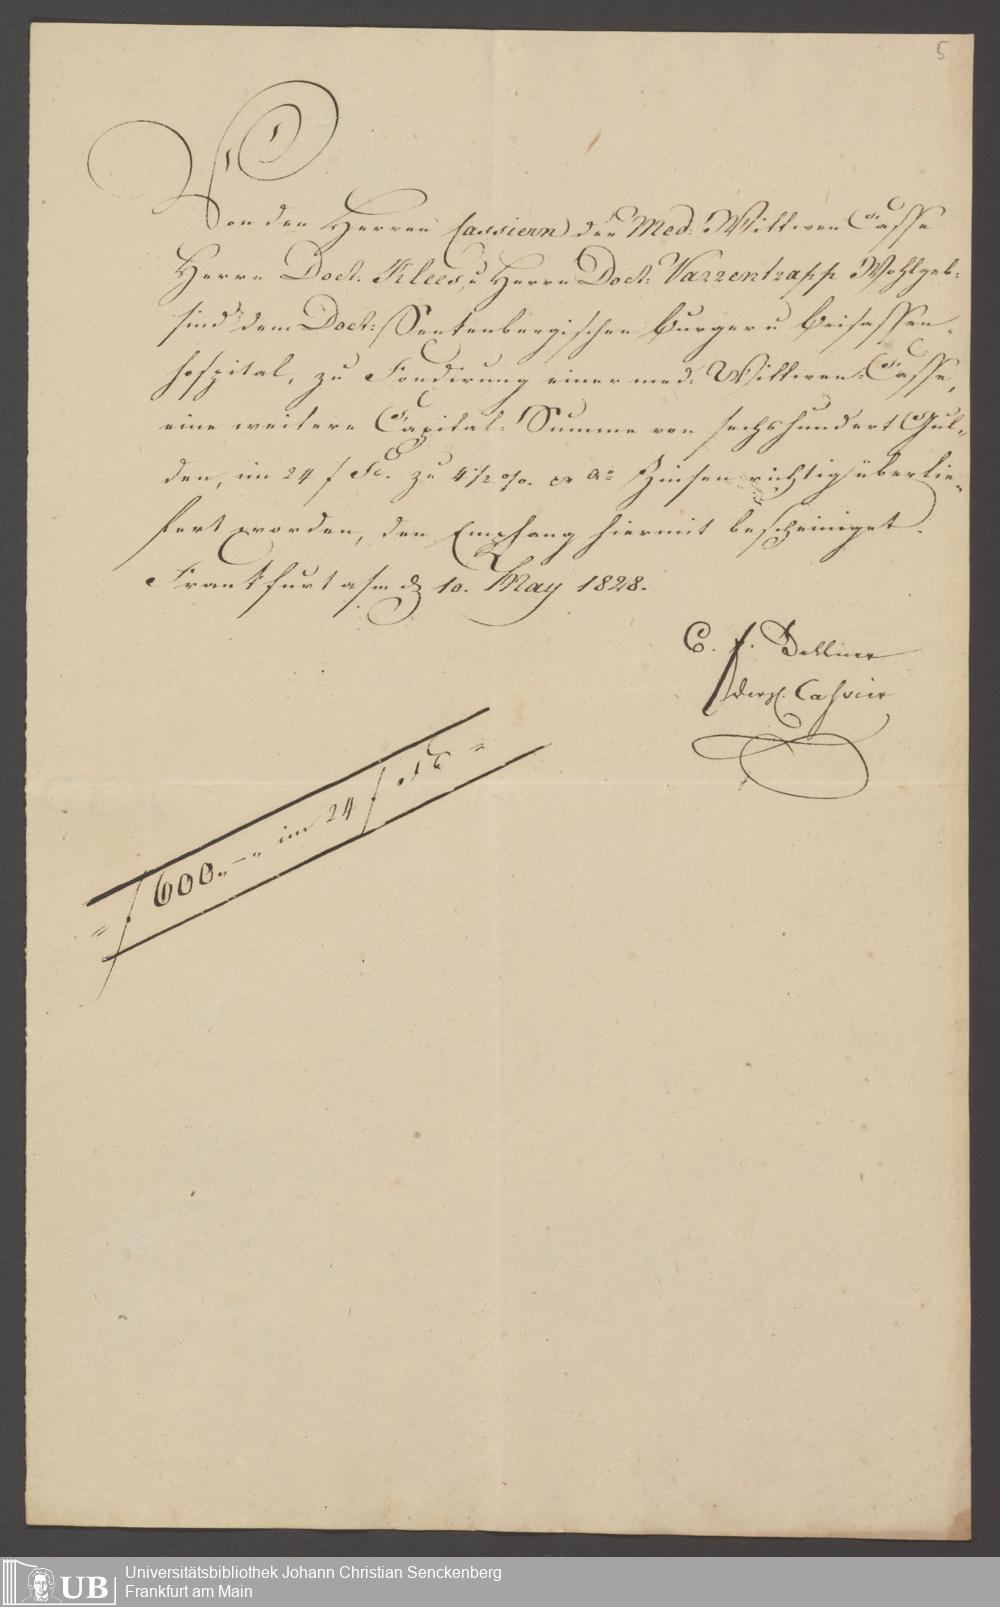 5
Von den Herren Cassiern der Med: Wittwen Casse
Herrn Doct. Klees, u Herrn Doct: Varrentrapp Wohlgeb:
sind dem Doct: Senkenbergischen Burger u Beisassen-
hospital, zu Fondirung einer med: Wittwen-Casse,
eine weitere Capital-Summe von sechshundert Gul-
den, im 24 f Fs. zu 4 1/2 %. pr ao Zinsen richtig überlie-
fert worden, den Empfang hiermit bescheiniget.
Frankfurt a/m d 10. May 1828.
C. F.
Cassier
f 600.-„ im 24 f Fs
UB
Universitätsbibliothek Johann Christian Senckenberg
Frankfurt am Main